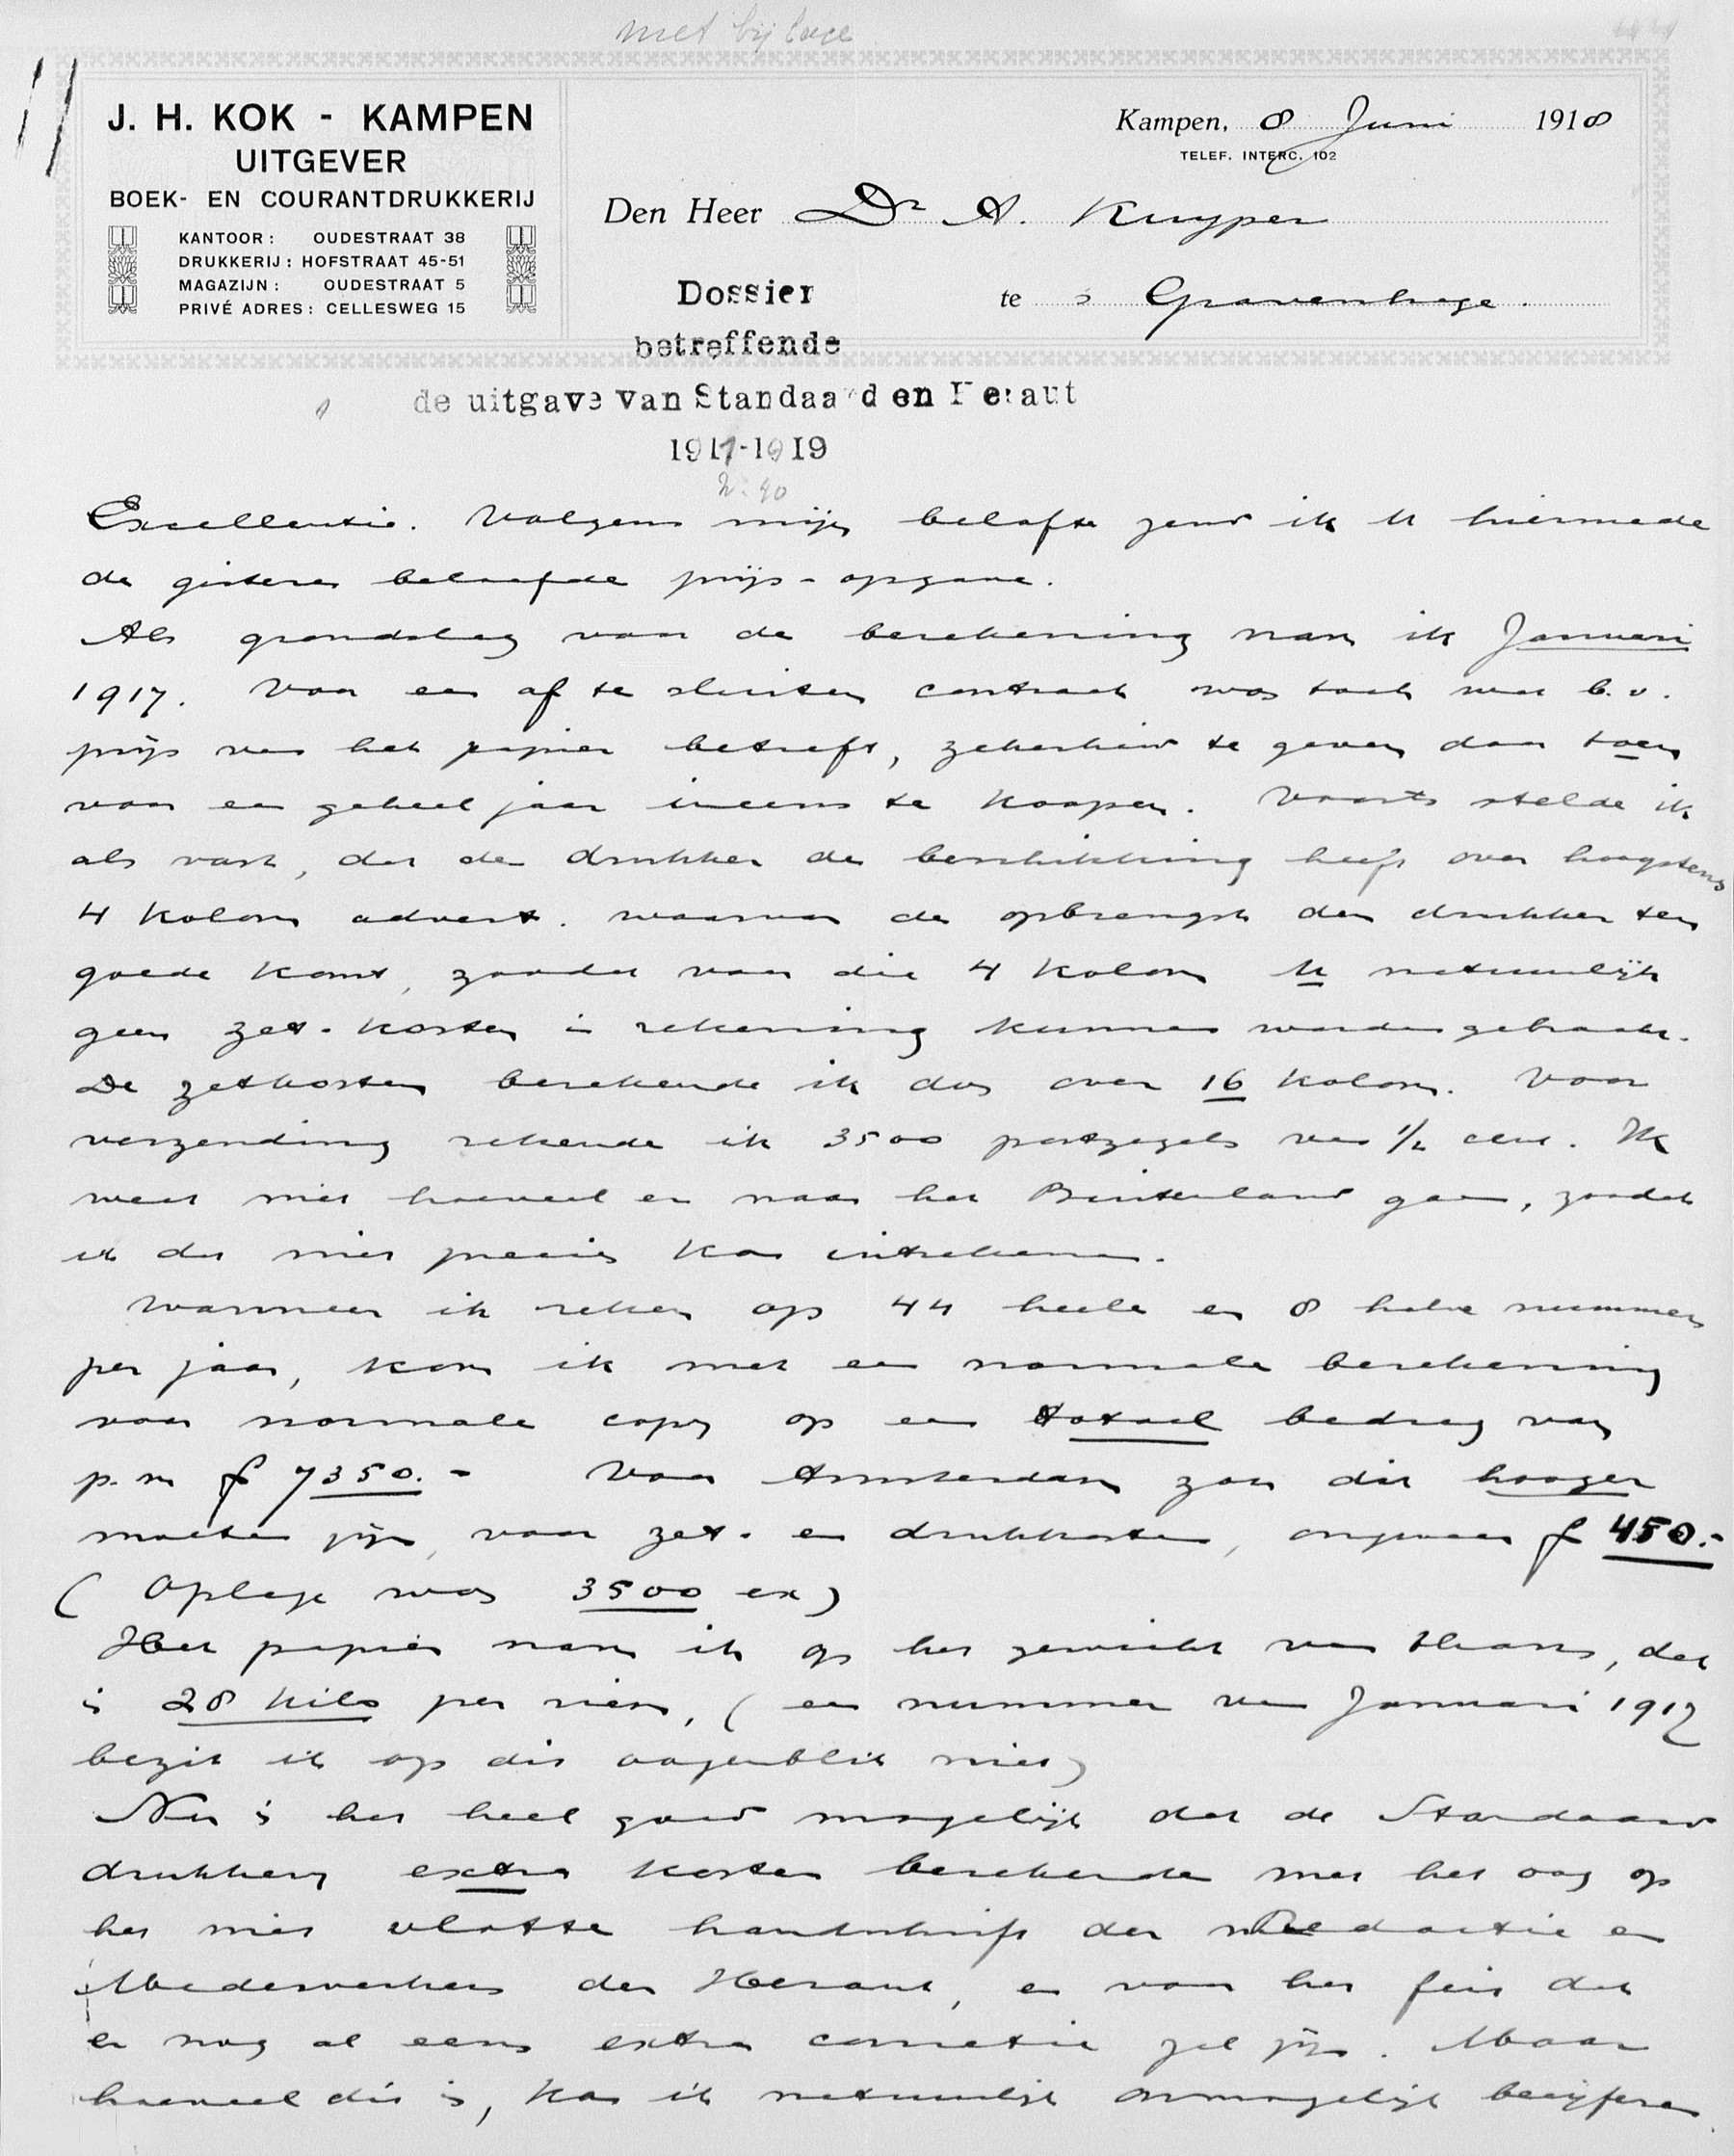 met bijlage
J. H. KOK - KAMPEN
UITGEVER
BOEK- EN COURANTDRUKKERIJ
KANTOOR: OUDESTRAAT 38
DRUKKERIJ: HOFSTRAAT 45-51
MAGAZIJN: OUDESTRAAT 5
PRIVÉ ADRES: CELLESWEG 15
Kampen, 8 Juni 1918
TELEF. INTERC. 102
Den Heer Dr A. Kuyper
te s Gravenhage.
Dossier
betreffende
de uitgave van Standaard en Heraut
1917-1919
No. 40
Excellentie. Volgens mijn belofte zend ik U hiermede
de gisteren beloofde prijs-opgave.
Als grondslag van de berekening nam ik Januari
1917. Voor een af te sluiten contract was toch wat b.v.
prijs van het papier betreft, zekerheid te geven door toen
voor een geheel jaar ineens te koopen. Voorts stelde ik
als vast, dat de drukker de beschikking heeft over hoogstens
4 kolom advert. waarvan de opbrengst den drukker ten
goede komt, zoodat voor die 4 kolom U natuurlijk
geen zet-kosten in rekening kunnen worden gebracht.
De zetkosten berekende ik dus over 16 kolom. Voor
verzending rekende ik 3500 postzegels van 1/2 cent. Ik
weet niet hoeveel er naar het Buitenland gaan, zoodat
ik dit niet precies kan uitrekenen.
Wanneer ik reken op 44 heele en 8 halve nummers
per jaar, kom ik met een normale berekening
voor normale copy op een totaal bedrag van
p.m f 7350.- Voor Amsterdam zou dit hooger
moeten zijn, voor zet- en drukkosten, ongeveer f 450.-
( Oplage was 3500 ex)
Het papier nam ik op het gewicht van thans, dat
is 28 kilo per riem, ( een nummer van Januari 1917
bezit ik op dit oogenblik niet)
Nu is het heel goed mogelijk dat de Standaard
drukkerij extra kosten berekende met het oog op
het niet vlotte handschrift der Redactie en
Medewerkers der Heraut, en voor het feit dat
er nog al eens extra correctie zal zijn. Maar
hoeveel dit is, kan ik natuurlijk onmogelijk becijferen